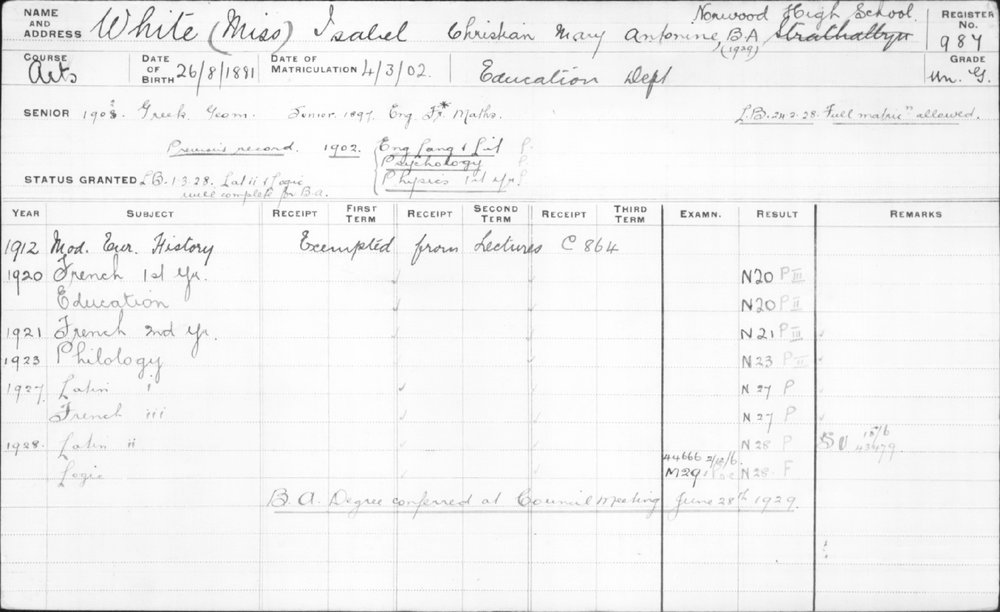 NAME AND ADDRESS White (Miss) Isabel Christian Mary Antonine, B.A (1929) Norwood High School. Strathalbyn REGISTER No. 987
COURSE Arts DATE OF BIRTH 26/8/1881 DATE OF MATRICULATION 4/3/02. Education Dept GRADE Un. G.
SENIOR Greek. Geom. Senior 1897. Eng. Fr* Maths. L.B. 24.2.28. "Full matric" allowed.
Previous record. 1902. Eng Lang & Lit P.
Psychology P.
STATUS GRANTED L.B. 1.3.28. Lat ii & Logic Physics 1st Yr. P
will complete for B.A.
YEAR SUBJECT RECEIPT FIRST TERM RECEIPT SECOND TERM RECEIPT THIRD TERM EXAMN. RESULT REMARKS
1912 Mod. Eur. History Exempted from Lectures C 864
1920 French 1st Yr. N20 P III
Education N20 P II
1921 French 2nd Yr. N21 P III
1923 Philology N23 P II
1927 Latin i N 27 P
French iii N 27 P
1928. Latin ii N28 P 18/6 43479
44666
Logic M29 N28 F
B.A. Degree conferred at Council Meeting June 28th 1929.